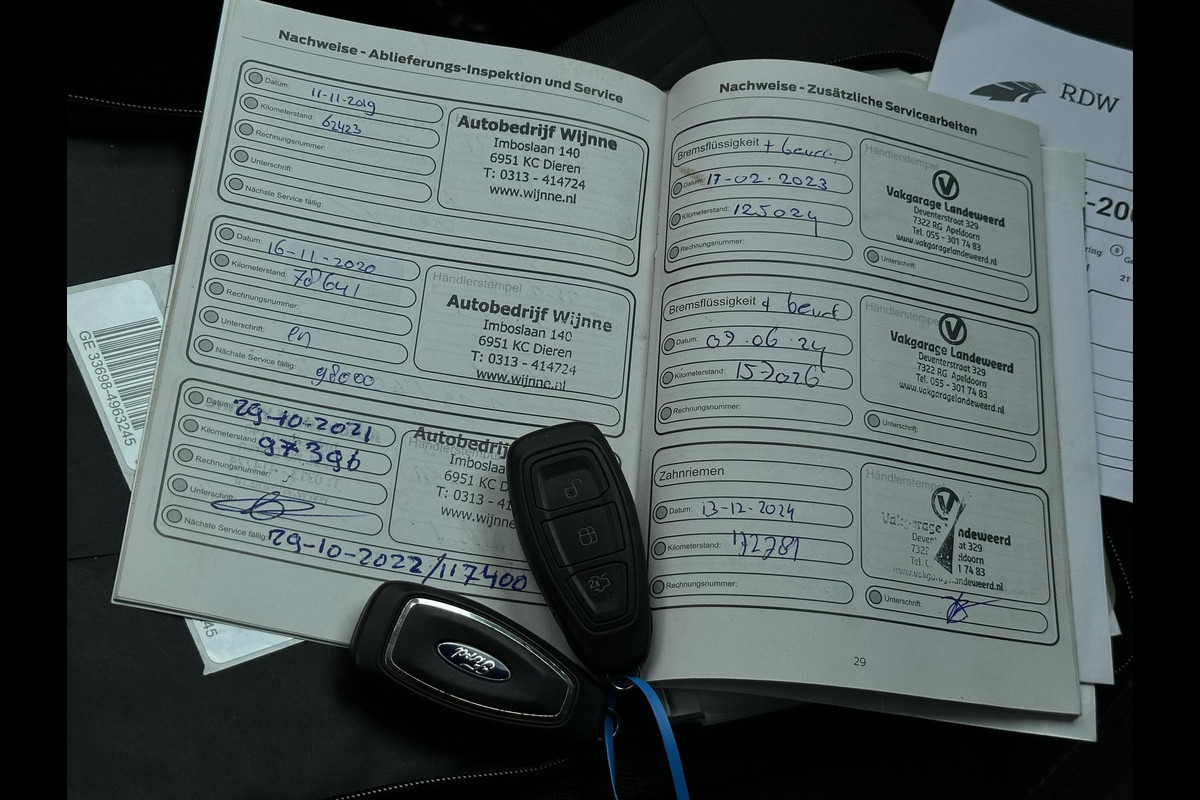 Nachweise - Ablieferungs-Inspektion und Service
Datum: 11-11-2019
Kilometerstand: 62423
Rechnungsnummer:
Unterschrift:
Nächste Service fällig:
Autobedrijf Wijnne
Imboslaan 140
6951 KC Dieren
T: 0313 - 414724
www.wijnne.nl
Datum: 16-11-2020
Kilometerstand: 78641
Rechnungsnummer:
Unterschrift:
Nächste Service fällig: 98000
Händlerstempel
Autobedrijf Wijnne
Imboslaan 140
6951 KC Dieren
T: 0313 - 414724
www.wijnne.nl
Datum: 29-10-2021
Kilometerstand: 97396
Rechnungsnummer:
Unterschrift:
Nächste Service fällig: 29-10-2022/117400
Händlerstempel
Autobedrij
Imboslaa
6951 KC D
T: 0313 - 41
www.wijnne
Nachweise - Zusätzliche Servicearbeiten
Bremsflüssigkeit + beurt
Datum: 17-02-2023
Kilometerstand: 125024
Rechnungsnummer:
Händlerstempel
Vakgarage Landeweerd
Deventerstraat 329
7322 RG Apeldoorn
Tel. 055 - 301 74 83
www.vakgaragelandeweerd.nl
Unterschrift:
Bremsflüssigkeit + beurt
Datum: 07.06.24
Kilometerstand: 157026
Rechnungsnummer:
Händlerstempel
Vakgarage Landeweerd
Deventerstraat 329
7322 RG Apeldoorn
Tel. 055 - 301 74 83
www.vakgaragelandeweerd.nl
Unterschrift:
Zahnriemen
Datum: 13-12-2024
Kilometerstand: 172781
Rechnungsnummer:
Händlerstempel
Vakgarage Landeweerd
Deventerstraat 329
7322 Apeldoorn
Tel. 1 74 83
www.vakgaragelandeweerd.nl
Unterschrift:
29
RDW
-200
21
GE 33698-4963245
245
Ford
2x